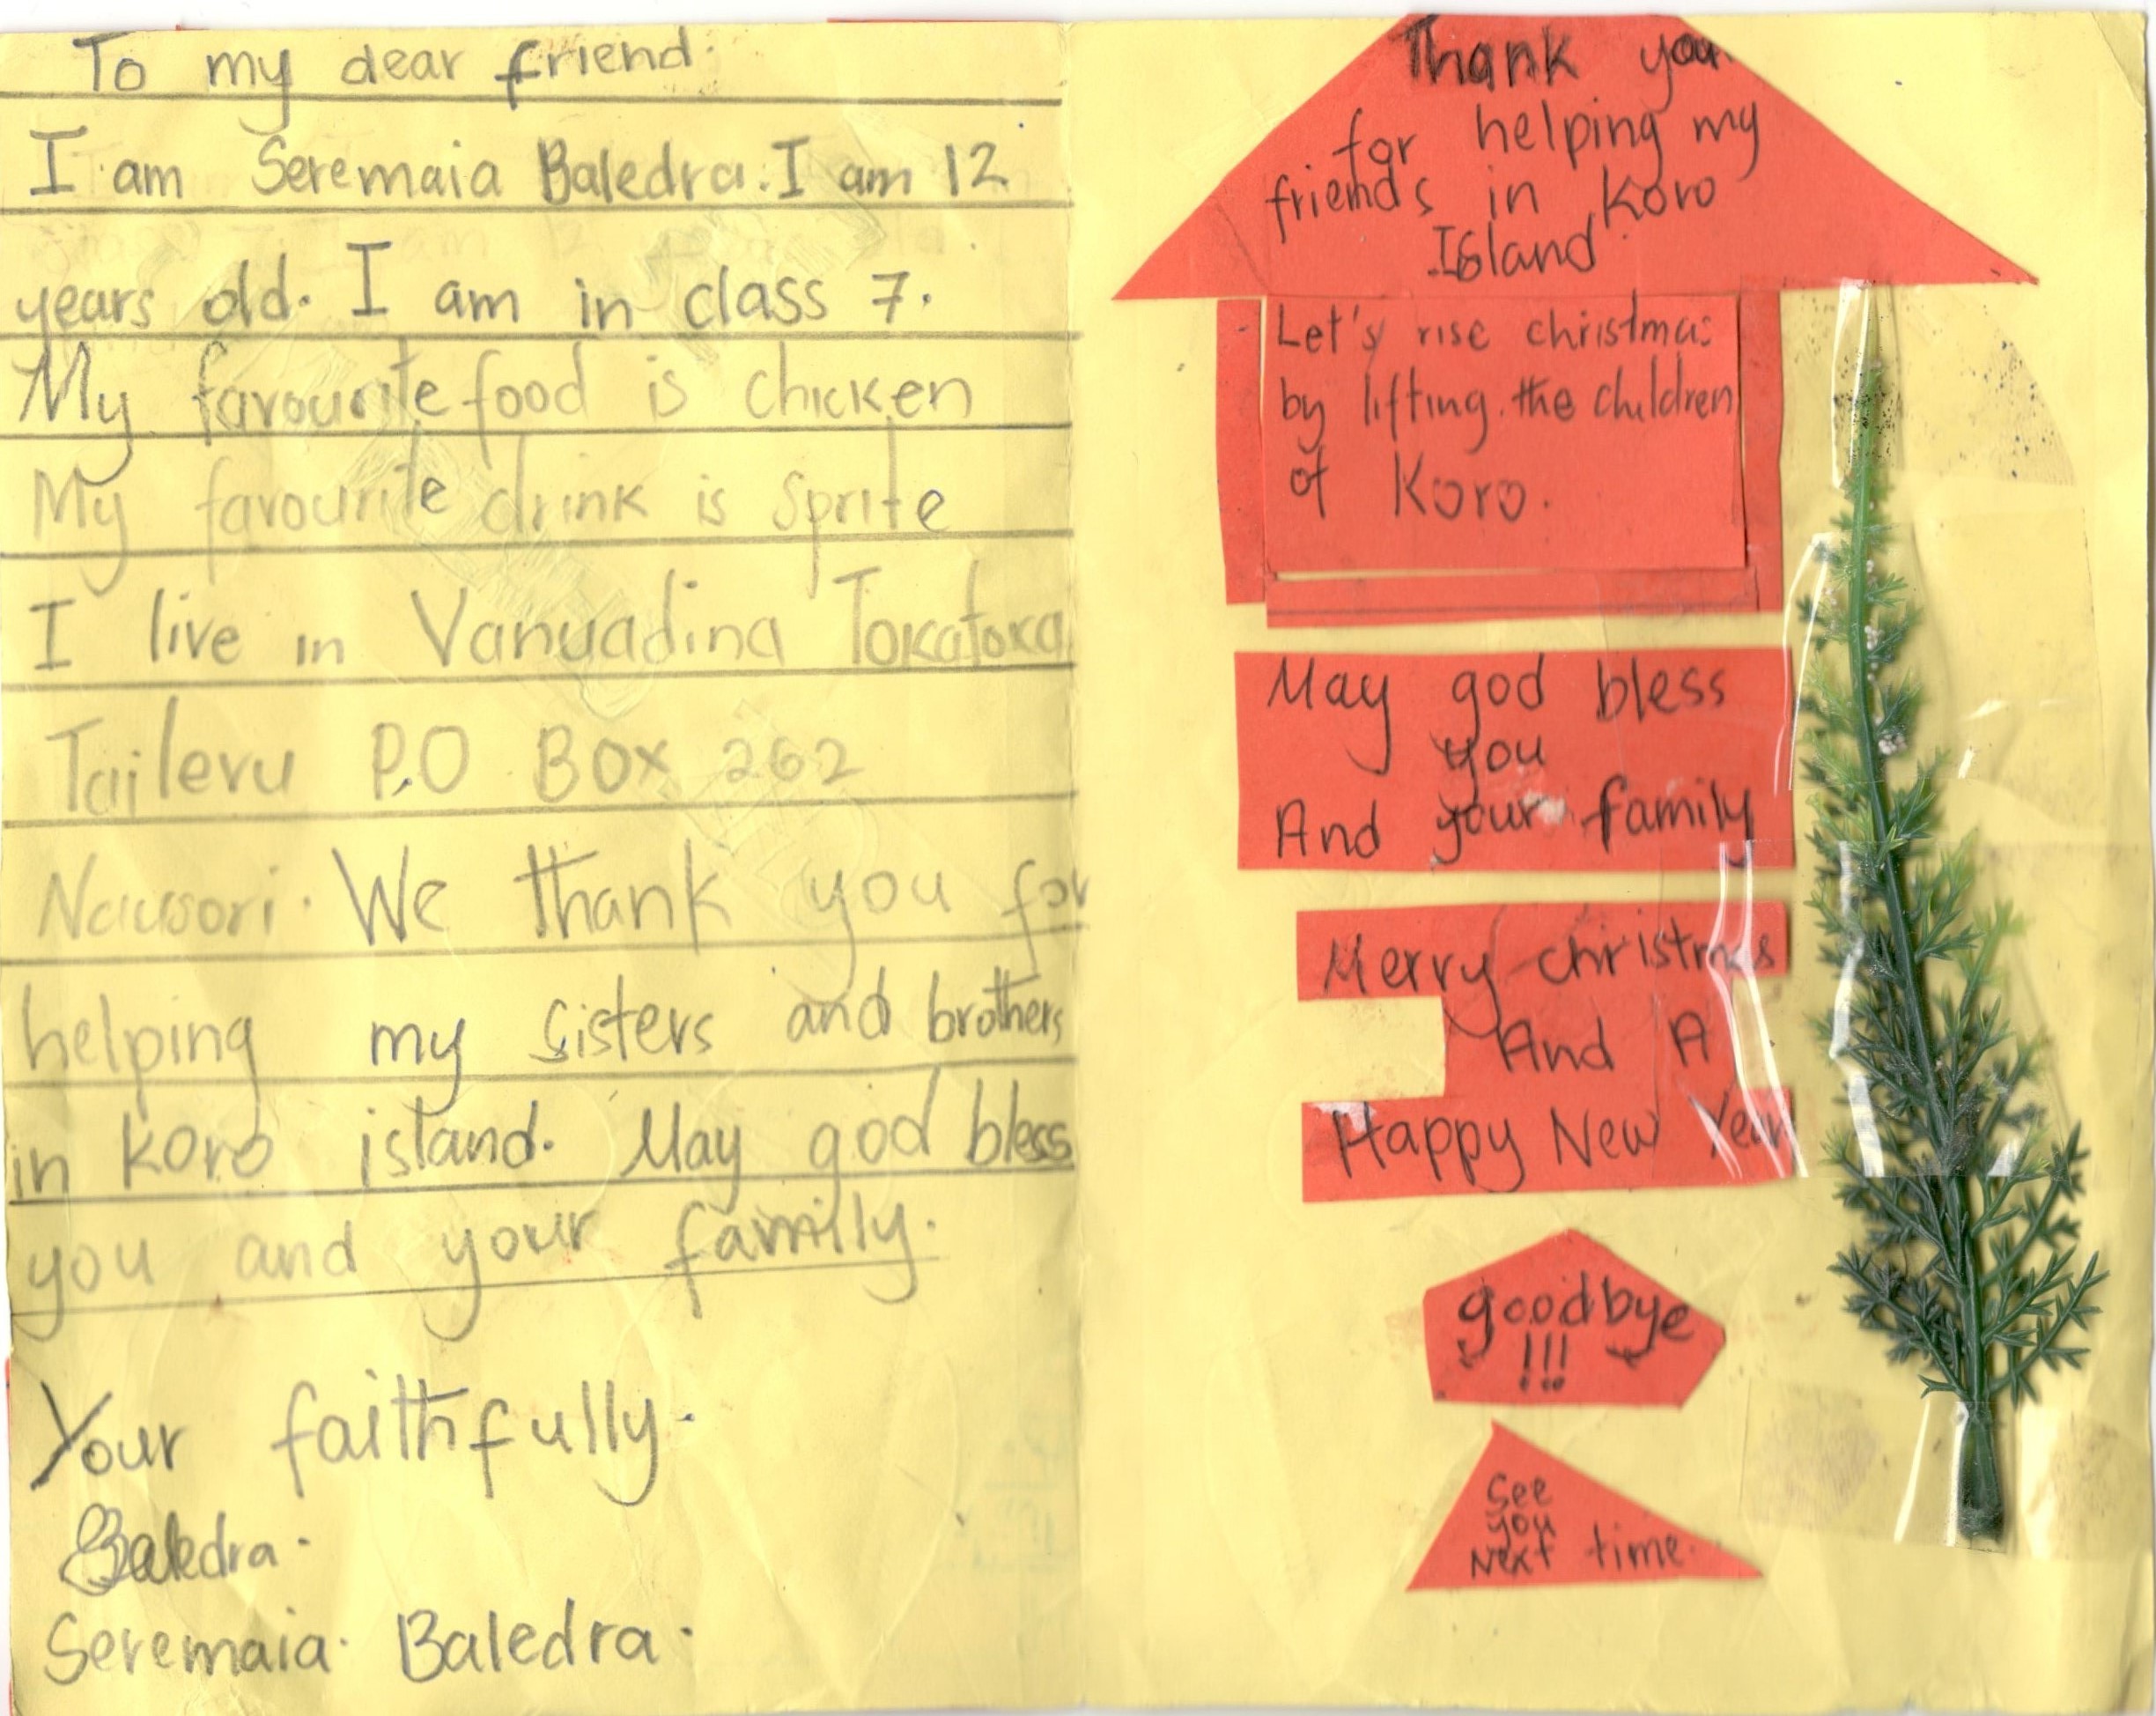 To my dear friend.
I am Seremaia Baledra. I am 12
years old. I am in class 7.
My favourite food is chicken
My favourite drink is Sprite
I live in Vanuadina Tokatoka
Tailevu P.O BOX 262
Nausori. We thank you for
helping my sisters and brothers
in koro island. May god bless
you and your family.
Your faithfully.
Baledra.
Seremaia. Baledra.
Thank you
for helping my
friends in Koro
Island.
Let's rise christmas
by lifting the children
of Koro.
May god bless
you
And your family
Merry christmas
And A
Happy New Year
goodbye
!!!
See
you
Next time.